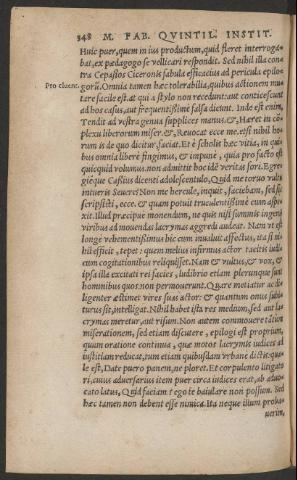 348 M. FAB. QVINTIL. INSTIT.
Huic puer, quem in ius productum, quid fleret interroga-
bat, ex pædagogo se vellicari respondit. Sed nihil illa con
tra Cepasios Ciceronis fabula efficacius ad pericula epilo-
Pro cluent. gorū. Omnia tamen hæc tolerabilia, quibus actionem mu-
tare facile est. at qui a stylo non recedunt: aut conticescunt
ad hos casus, aut frequentissime falsa dicunt. Inde est enim,
Tendit ad vestra genua supplices manus. &, Hæret in cō-
plexu liberorum miser. &, Reuocat ecce me. etsi nihil ho-
rum is de quo dicitur, faciat. Et è scholis hæc vitia, in qui
bus omnia libere fingimus, & impune, quia pro facto est
quicquid volumus. non admittit hoc idē veritas fori. Egre
gieque Cassius dicenti adolescentulo, Quid me toruo vultu
intueris Seuere? Non me hercule, inquit, faciebam, sed sic
scripsisti, ecce. & quam potuit truculentissime eum aspe-
xit. Illud præcipue monendum, ne quis nisi summis ingenii
viribus ad mouendas lacrymas aggredi audeat. Nam vt est
longe vehementissimus hic cum inualuit affectus, ita si ni-
hil efficit, tepet: quem melius infirmus actor tacitis iudi-
cum cogitationibus reliquisset. Nam & vultus, & vox, &
ipsa illa excitati rei facies, ludibrio etiam plerunque sunt
hominibus quos non permouerunt. Quare metiatur ac di-
ligenter æstimet vires suas actor: & quantum onus subi-
turus sit, intelligat. Nihil habet ista res medium, sed aut la-
crymas meretur, aut risum. Non autem commouere tātum
miserationem, sed etiam discutere, epilogi est proprium,
quum oratione continua, quæ motos lacrymis iudices ad
iustitiam reducat, tum etiam quibusdam vrbane dictis: qua
le est, Date puero panem, ne ploret. Et corpulento litigato
ri, cuius aduersarius item puer circa iudices erat, ab aduo-
cato latus, Quid faciam? ego te baiulare non possum. Sed
hæc tamen non debent esse mimica. Ita neque illum proba-
uerim,